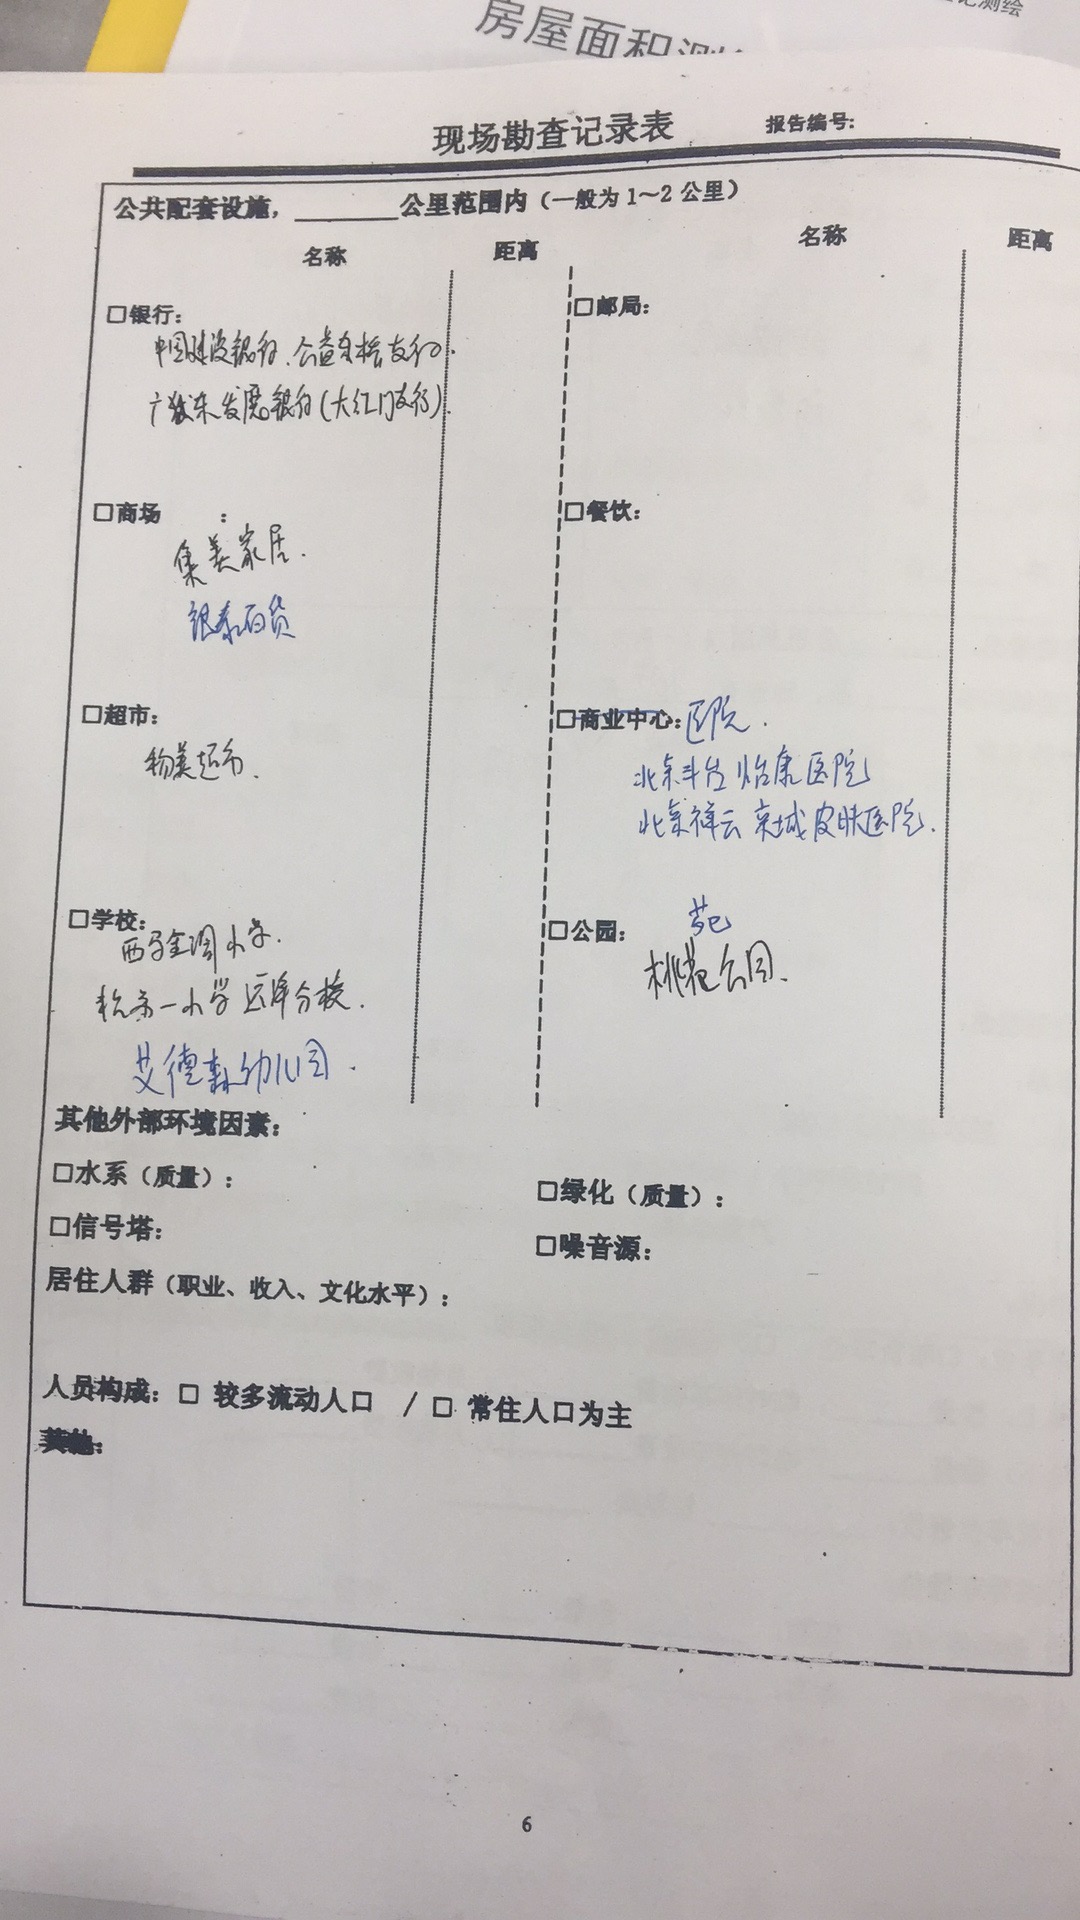 记测绘
房屋面积测绘
现场勘查记录表 报告编号:
公共配套设施，________公里范围内（一般为1～2公里）
名称 距离 名称 距离
□银行: □邮局:
中国建设银行.公益西桥支行.
广东发展银行(大红门支行).
□商场 : □餐饮:
集美家居.
银泰百货
□超市: □商业中心:医院.
物美超市.
北京丰台怡康医院
北京祥云京城皮肤医院.
□学校: □公园: 苑
西马金润小学.
小学 分校.
桃花公园.
艾德森幼儿园.
其他外部环境因素:
□水系（质量）: □绿化（质量）:
□信号塔: □噪音源:
居住人群（职业、收入、文化水平）:
人员构成: □ 较多流动人口 / □ 常住人口为主
其他:
6